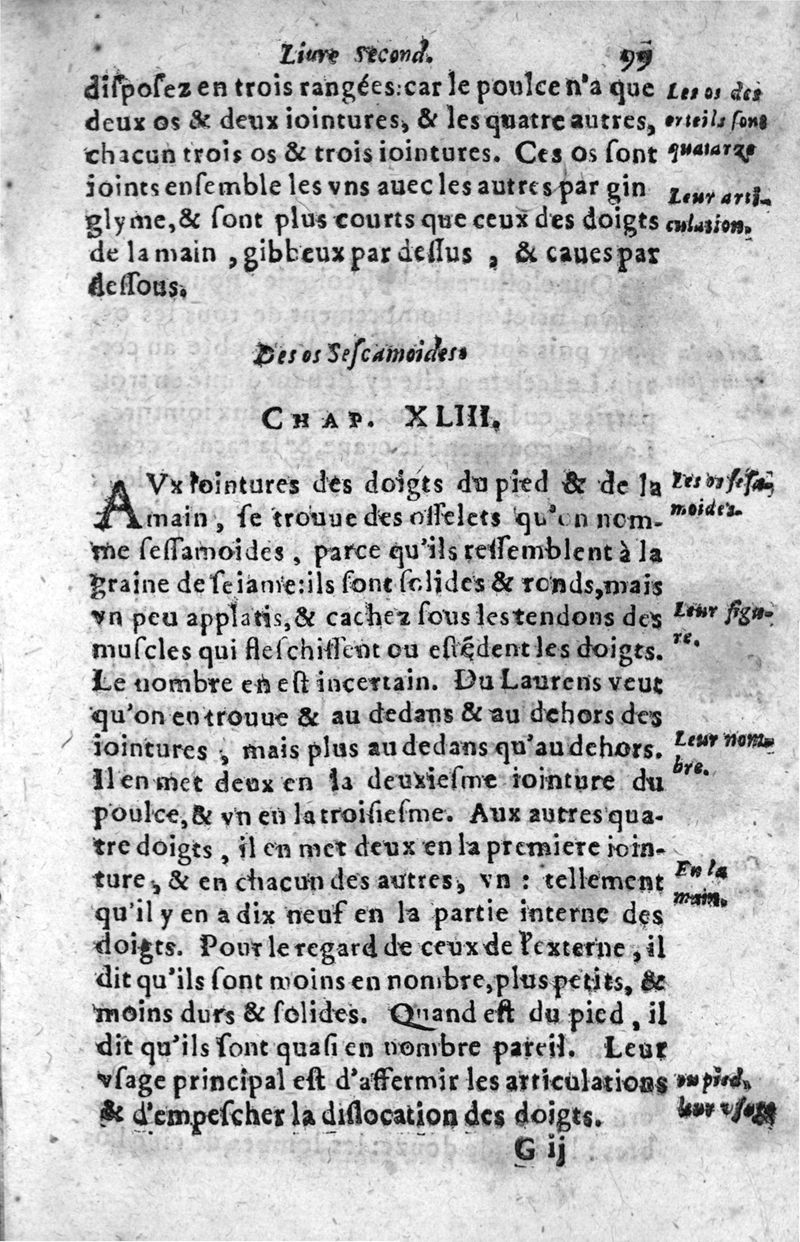 Liure Second. 99
disposez en trois rangées: car le poulce n'a que
deux os & deux iointures, & les quatre autres,
chacun trois os & trois iointures. Ces os sont
ioints ensemble les vns auec les autres par gin
glyme, & sont plus courts que ceux des doigts
de la main, gibbeux par dessus, & caues par
dessous.
Les os des
orteils sont
quatorze
Leur arti-
culation.
Des os Sescamoides.
CHAP. XLIII.
AVx iointures des doigts du pied & de la
main, se trouue des osselets qu'on nom-
me sessamoides, parce qu'ils ressemblent à la
graine de sesame: ils sont solides & ronds, mais
vn peu applatis, & cachez sous les tendons des
muscles qui fleschissent ou estẽdent les doigts.
Le nombre en est incertain. Du Laurens veut
qu'on en trouue & au dedans & au dehors des
iointures, mais plus au dedans qu'au dehors.
Il en met deux en la deuxiesme iointure du
poulce, & vn en la troisiesme. Aux autres qua-
tre doigts, il en met deux en la premiere ioin-
ture, & en chacun des autres, vn: tellement
qu'il y en a dix neuf en la partie interne des
doigts. Pour le regard de ceux de l'externe, il
dit qu'ils sont moins en nombre, plus petits, &
moins durs & solides. Quand est du pied, il
dit qu'ils sont quasi en nombre pareil. Leur
vsage principal est d'affermir les articulations
& d'empescher la dislocation des doigts.
Les os sesa-
moides.
Leur figu-
re.
Leur nom-
bre.
En la
main.
au pied,
leur vsage
G ij